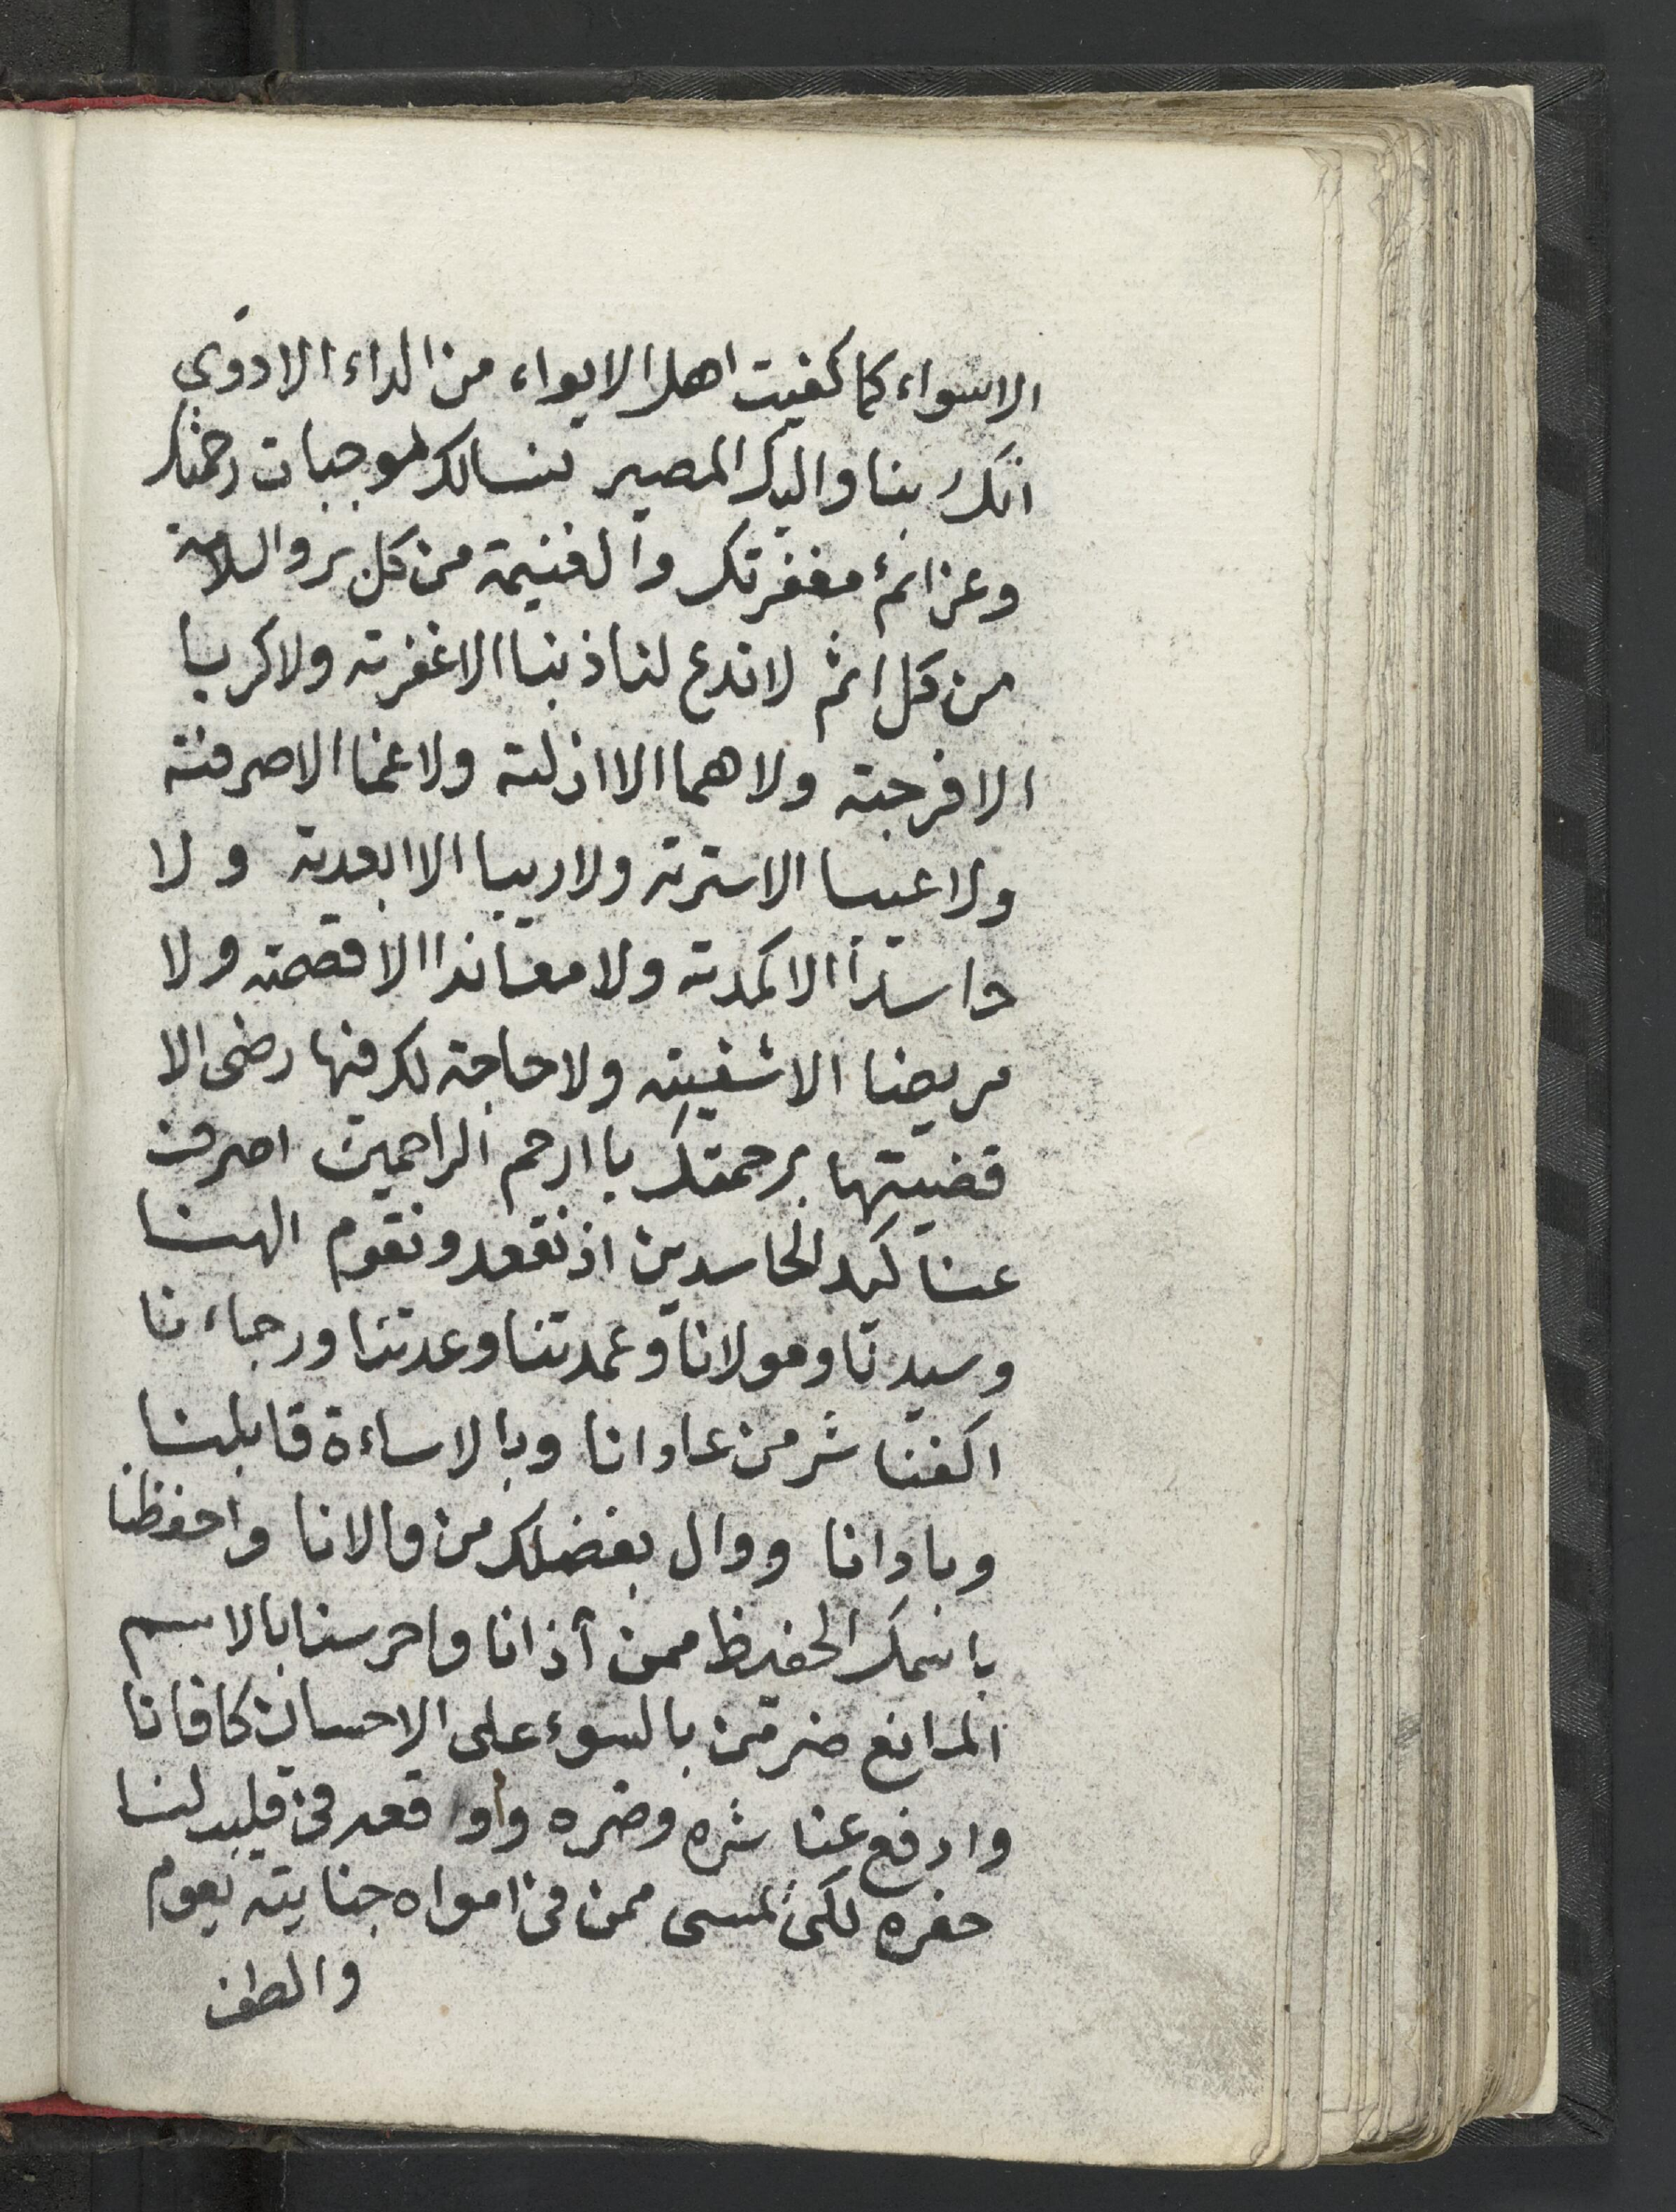 الاسواء كما كفيت اهل الايواء من الداء الادوى
انك ربنا واليك المصير نسالك موجبات رحمتك
وعزائم مغفرتك والغنيمة من كل بر والسلامة
من كل اثم لا تدع لنا ذنبا الا غفرته ولا كربا
الا فرجته ولا هما الا ازلته ولا غما الا صرفته
ولا عيبا الا سترته ولا ريبا الا ابعدته ولا
حاسدا الا كمدته ولا معاندا الا قصمته ولا
مريضا الا شفيته ولا حاجة لك فيها رضى الا
قضيتها برحمتك يا ارحم الراحمين اصرف
عنا كيد الحاسدين اذ نقعد ونقوم الهنا
وسيدنا ومولانا وعمدتنا وعدتنا ورجاءنا
اكفنا شر من عادانا وبالاساءة قابلنا
وبادانا ووال بفضلك من والانا واحفظنا
باسمك الحفيظ ممن آذانا واحرسنا بالاسم
المانع ضر من بالسوء على الاحسان كافانا
وادفع عنا شره وضره وأوقعه في قليب لنا
حفره لكي نمسى ممن في امواه جنايته يعوم
والطف